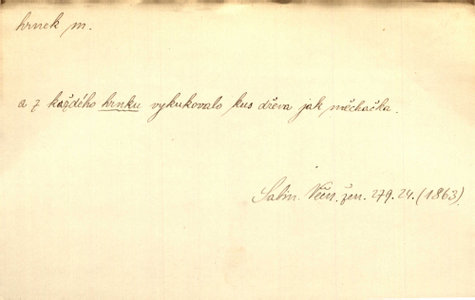 hrnek m.
a z každého hrnku vykukovalo kus dřeva jak měchačka.
Sabin. Věčn. žen. 279.24. (1863)